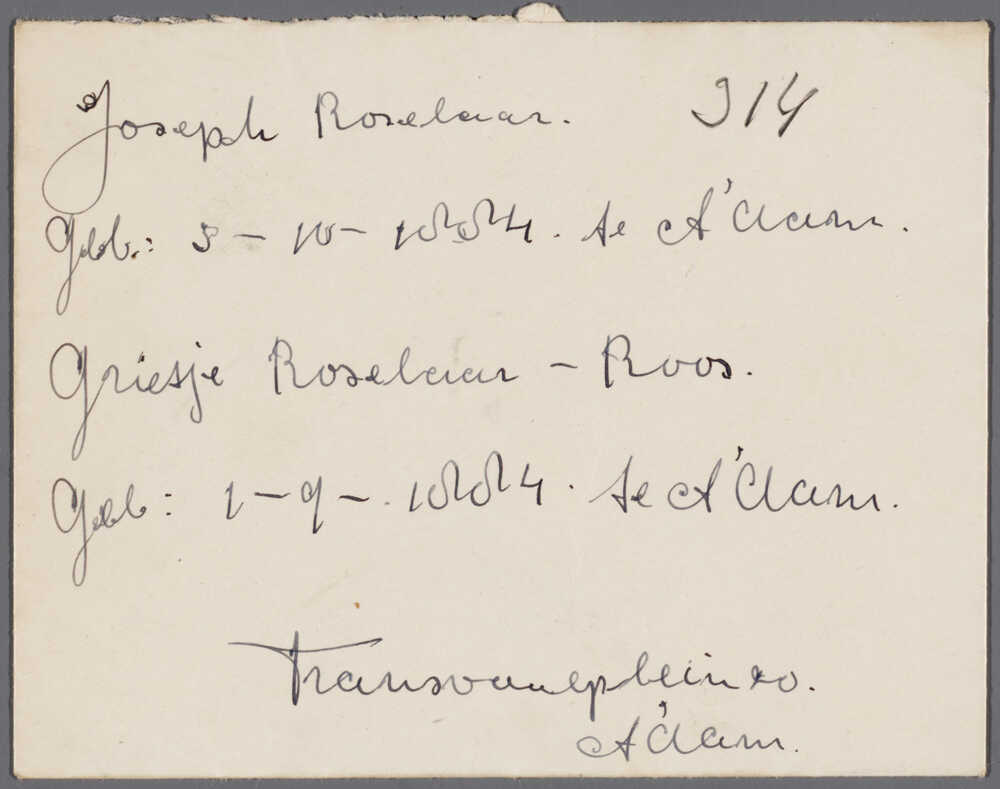 Joseph Roselaar. 914
Geb: 5 - 10 - 1884. te A'dam.
Grietje Roselaar - Roos.
Geb: 1 - 9 - 1884. te A'dam.
Transvaalplein 20.
A'dam.